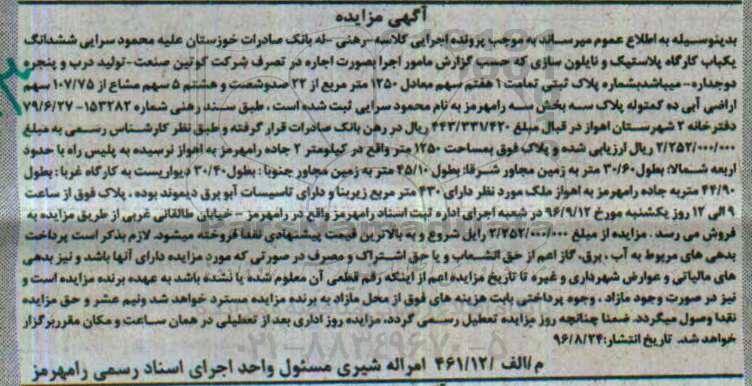 آگهی مزایده
بدینوسیله به اطلاع عموم میرساند به موجب پرونده اجرایی کلاسه-رهنی -له بانک صادرات خوزستان علیه محمود سرایی ششدانگ
یکباب کارگاه پلاستیک و نایلون سازی که حسب گزارش مامور اجرا بصورت اجاره در تصرف شرکت گوتین صنعت-تولید درب و پنجره
دوجداره- میباشدبشماره پلاک ثبتی تمامت ۱ هفتم سهم معادل ۱۲۵۰ متر مربع از ۲۲ صدوشصت و هشتم ۵ سهم مشاع از ۱۰۷/۷۵ سهم
اراضی آبی ده کمتوله پلاک سه بخش سه رامهرمز به نام محمود سرایی ثبت شده است . طبق سند رهنی شماره ۱۵۳۲۸۲- ۷۹/۶/۲۷
دفترخانه ۲ شهرستان اهواز در قبال مبلغ ۴۴۲/۳۳۱/۴۲۰ ریال در رهن بانک صادرات قرار گرفته و طبق نظر کارشناس رسمی به مبلغ
۲/۲۵۲/۰۰۰/۰۰۰ ریال ارزیابی شده و پلاک فوق بمساحت ۱۲۵۰ متر واقع در کیلومتر ۲ جاده رامهرمز به اهواز نرسیده به پلیس راه با حدود
اربعه شمالا: بطول ۳۰/۶۰ متر به زمین مجاور شرقا: بطول ۴۵/۱۰ متر به زمین مجاور جنوبا : بطول ۳۰/۴۰ دیواریست به کارگاه غربا: بطول
۴۴/۹۰ متربه جاده رامهرمز به اهواز ملک مورد نظر دارای ۴۳۰ متر مربع زیربنا و دارای تاسیسات آب و برق دیموند بوده . پلاک فوق از ساعت
۹ الی ۱۲ روز یکشنبه مورخ ۹۶/۹/۱۲ در شعبه اجرای اداره ثبت اسناد رامهرمز واقع در رامهرمز - خیابان طالقانی غربی از طریق مزایده به
فروش می رسد . مزایده از مبلغ ۲/۲۵۲/۰۰۰/۰۰۰ رایل شروع و به بالاترین قیمت پیشنهادی نقدا فروخته میشود. لازم بذکر است پرداخت
بدهی های مربوط به آب ، برق، گاز اعم از حق انشعاب و یا حق اشتراک و مصرف در صورتی که مورد مزایده دارای آنها باشد و نیز بدهی
های مالیاتی و عوارض شهرداری و غیره تا تاریخ مزایده اعم از اینکه رقم قطعی آن معلوم شده یا نشده باشد به عهده برنده مزایده است و
نیز در صورت وجود مازاد ، وجوه پرداختی بابت هزینه های فوق از محل مازاد به برنده مزایده مسترد خواهد شد ونیم عشر و حق مزایده
نقدا وصول میگردد. ضمنا چنانچه روز مزایده تعطیل رسمی گردد، مزایده روز اداری بعد از تعطیلی در همان ساعت و مکان مقرربرگزار
خواهد شد. تاریخ انتشار:۹۶/۸/۲۴
۰۲۱-۸۸۳۴۹۶۷۰-۵
م/الف /۴۶۱/۱۲ امراله شیری مسئول واحد اجرای اسناد رسمی رامهرمز